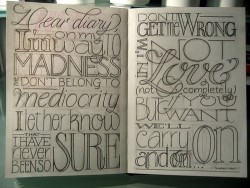 Dear diary,
I'm on my
way to
MADNESS
DON'T BELONG TO
mediocrity
I let her know
THAT
I HAVE
never
BEEN SO
SURE
DON'T
GET ME WRONG
I'M
NOT
IN
Love
(not completely)
BUT
WANT
WE'LL
carry
and on
...on